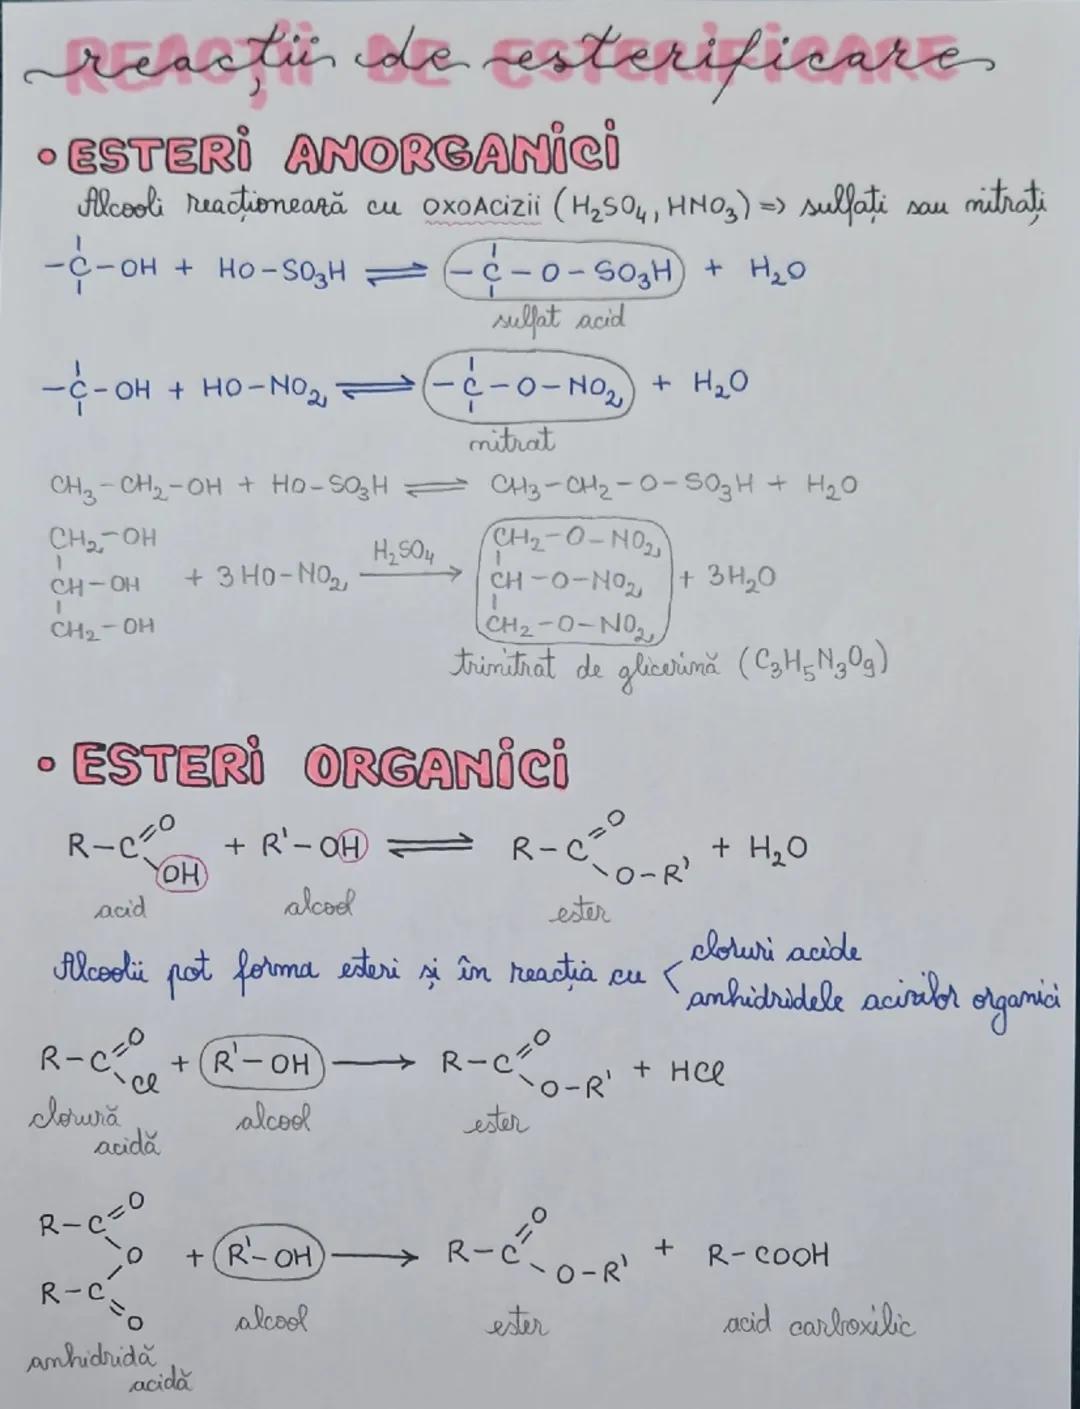 reacții de esterificare
• ESTERI ANORGANICI
Alcooli reacționează cu oxoAcizii (H₂SO₄, HNO₃) => sulfați sau nitrați
-C-OH + HO-SO₃H ⇌ -C-O-SO₃H + H₂O
sulfat acid
-C-OH + HO-NO₂ ⇌ -C-O-NO₂ + H₂O
nitrat
CH₃-CH₂-OH + HO-SO₃H ⇌ CH₃-CH₂-O-SO₃H + H₂O
CH₂-OH CH₂-O-NO₂
CH-OH + 3HO-NO₂ H₂SO₄ → CH-O-NO₂ + 3H₂O
CH₂-OH CH₂-O-NO₂
trinitrat de glicerină (C₃H₅N₃O₉)
• ESTERI ORGANICI
R-C=O OH + R'-OH ⇌ R-C=O O-R' + H₂O
acid alcool ester
Alcoolii pot forma esteri și în reacția cu < cloruri acide
anhidridele acizilor organici
R-C=O Cl + R'-OH → R-C=O O-R' + HCl
clorură acidă alcool ester
R-C=O O R-C=O + R'-OH → R-C=O O-R' + R-COOH
anhidridă acidă alcool ester acid carboxilic